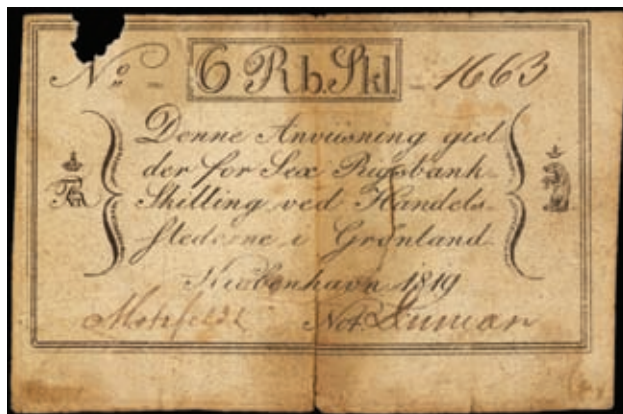 No - 6 Rb. Skl. - 1663
Denne Anviisning giel
der for Sex Rigsbank-
Skilling ved Handels-
stederne i Grønland.
Kiøbenhavn 1819
Motzfeldt Not